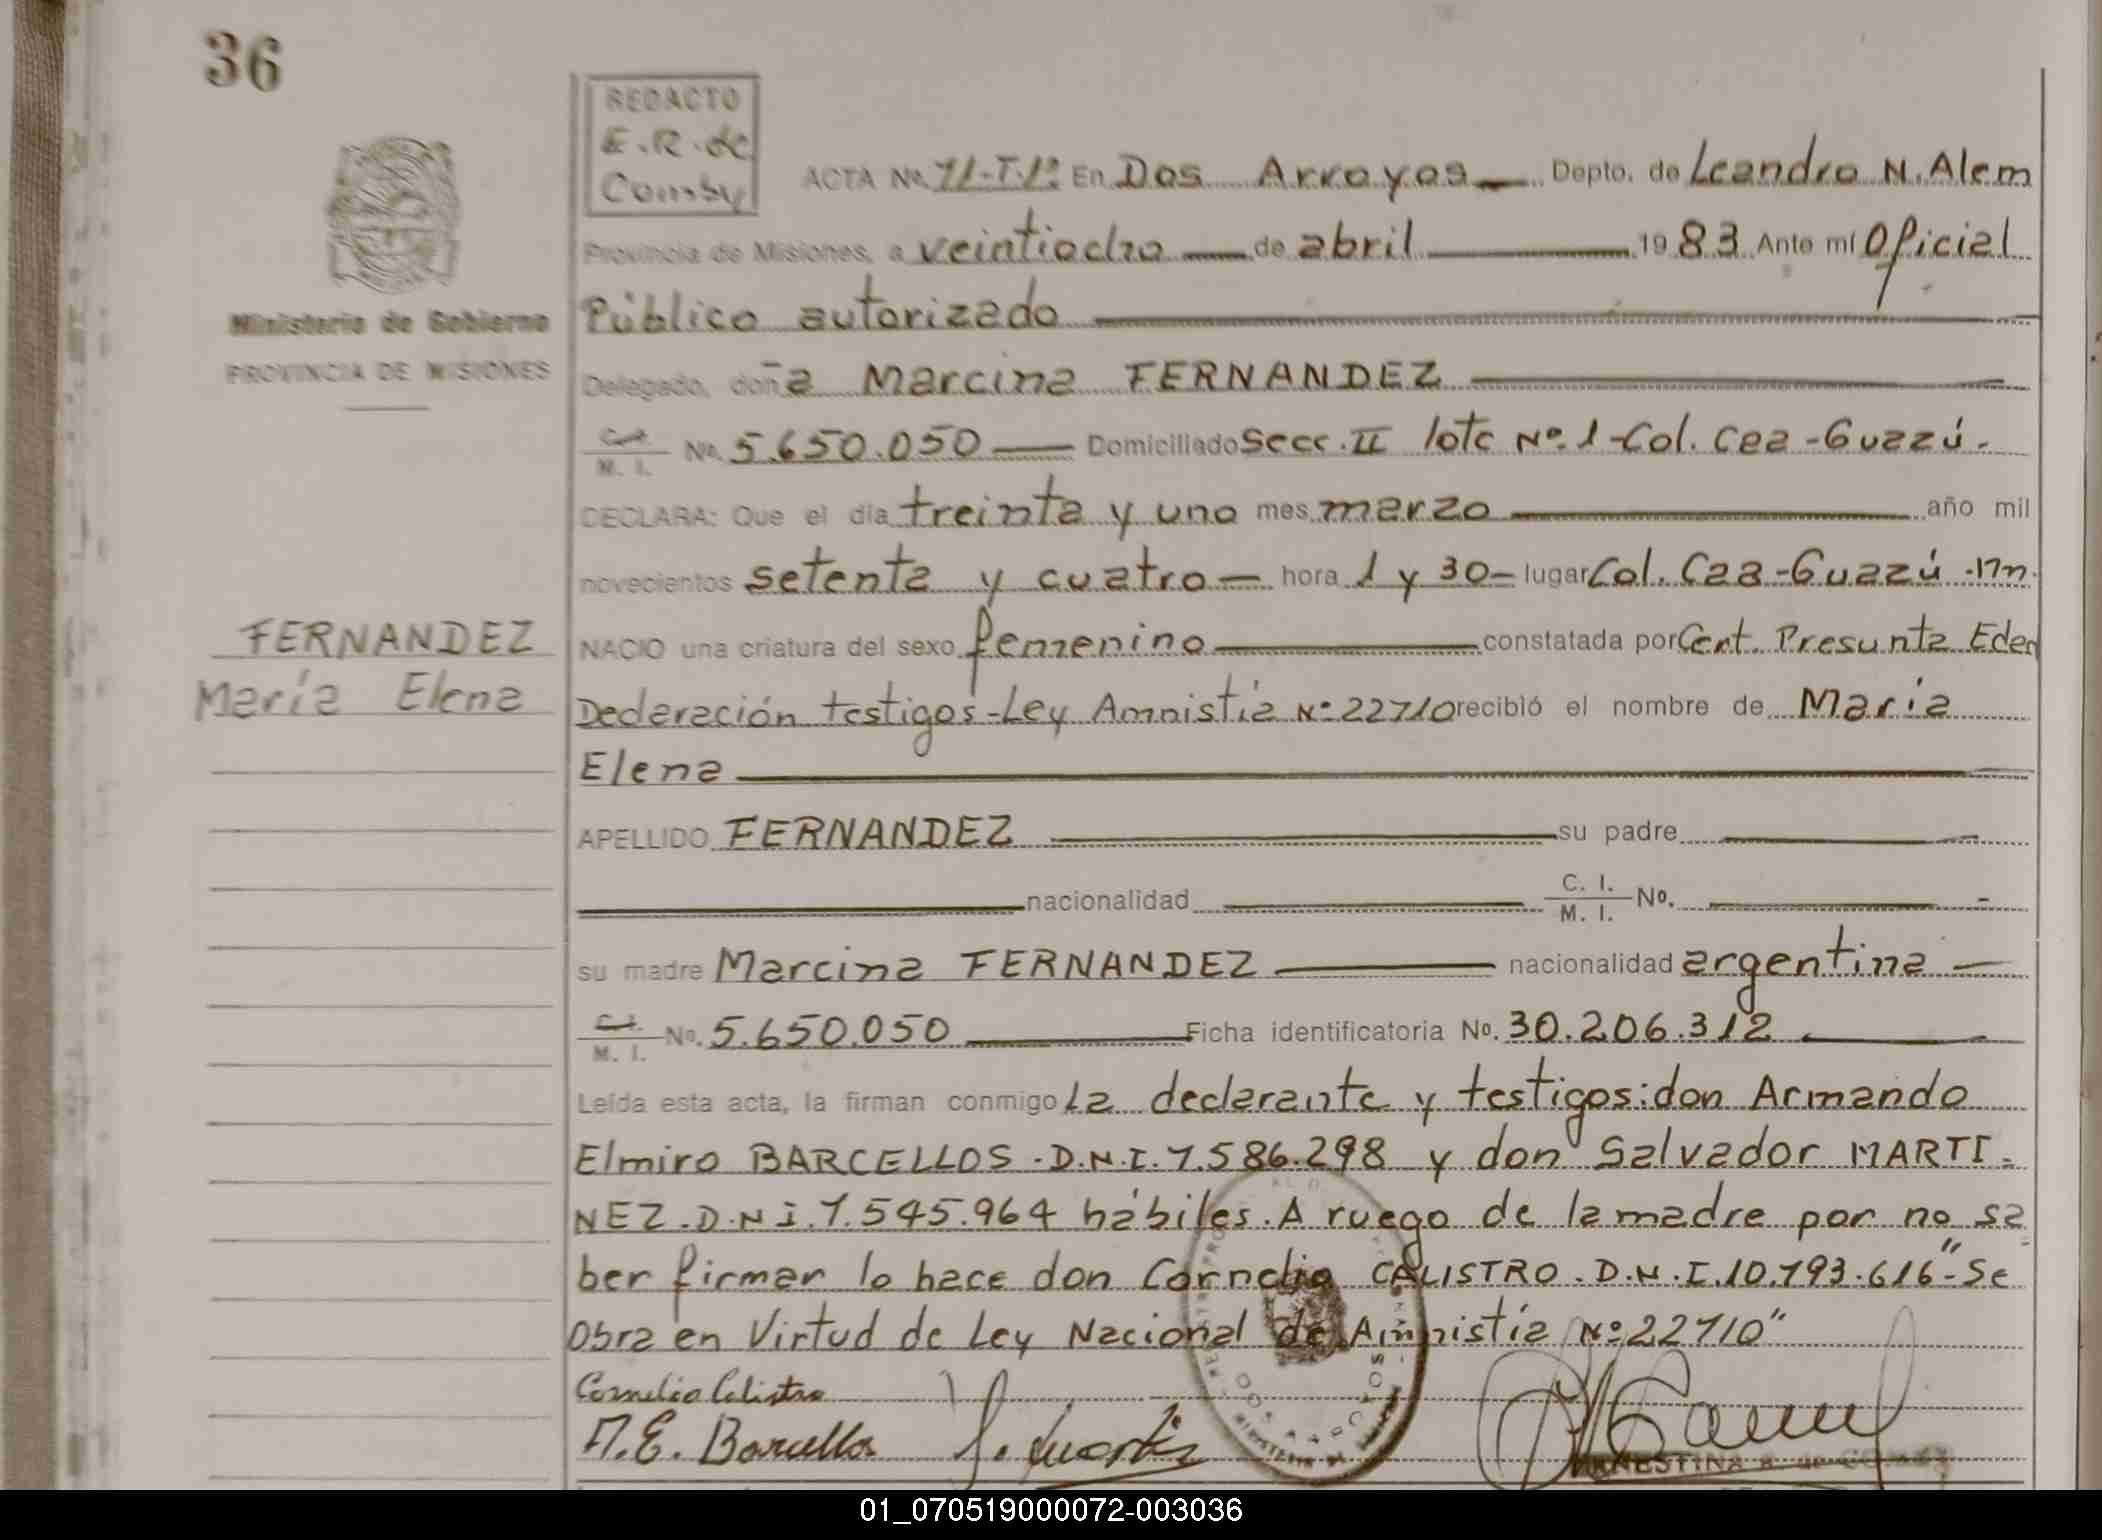 36
REDACTO
E.R. de
Comby
ACTA No. 71-T.1º En Dos Arroyos Depto. de Leandro N. Alem
Provincia de Misiones, a veintiocho de abril 1983 Ante mí Oficial
Público autorizado
Ministerio de Gobierno
PROVINCIA DE MISIONES
Delegado, doña Marcina FERNANDEZ
C. I.
M. I. No. 5.650.050 Domiciliado Secc. II lote Nº. 1-Col. Caa-Guazú.
DECLARA: Que el día treinta y uno mes marzo año mil
novecientos setenta y cuatro hora 1 y 30 lugar Col. Caa-Guazú
FERNANDEZ
María Elena
NACIO una criatura del sexo femenino constatada por Cert. Presunta Edad
Declaración testigos-Ley Amnistía Nº 22710 recibió el nombre de María
Elena
APELLIDO FERNANDEZ su padre
nacionalidad C. I.
M. I. No.
su madre Marcina FERNANDEZ nacionalidad argentina
C. I.
M. I. No. 5.650.050 Ficha identificatoria No. 30.206.312
Leída esta acta, la firman conmigo la declarante y testigos: don Armando
Elmiro BARCELLOS. D.N.I. 7.586.298 y don Salvador MARTI-
NEZ. D.N.I. 7.545.964 hábiles. A ruego de la madre por no sa
ber firmar lo hace don Cornelio CALISTRO. D.N.I. 10.793.616 "Se
Obra en Virtud de Ley Nacional de Amnistía Nº 22710"
Cornelio Calistro
A. E. Barcellos
01_070519000072-003036